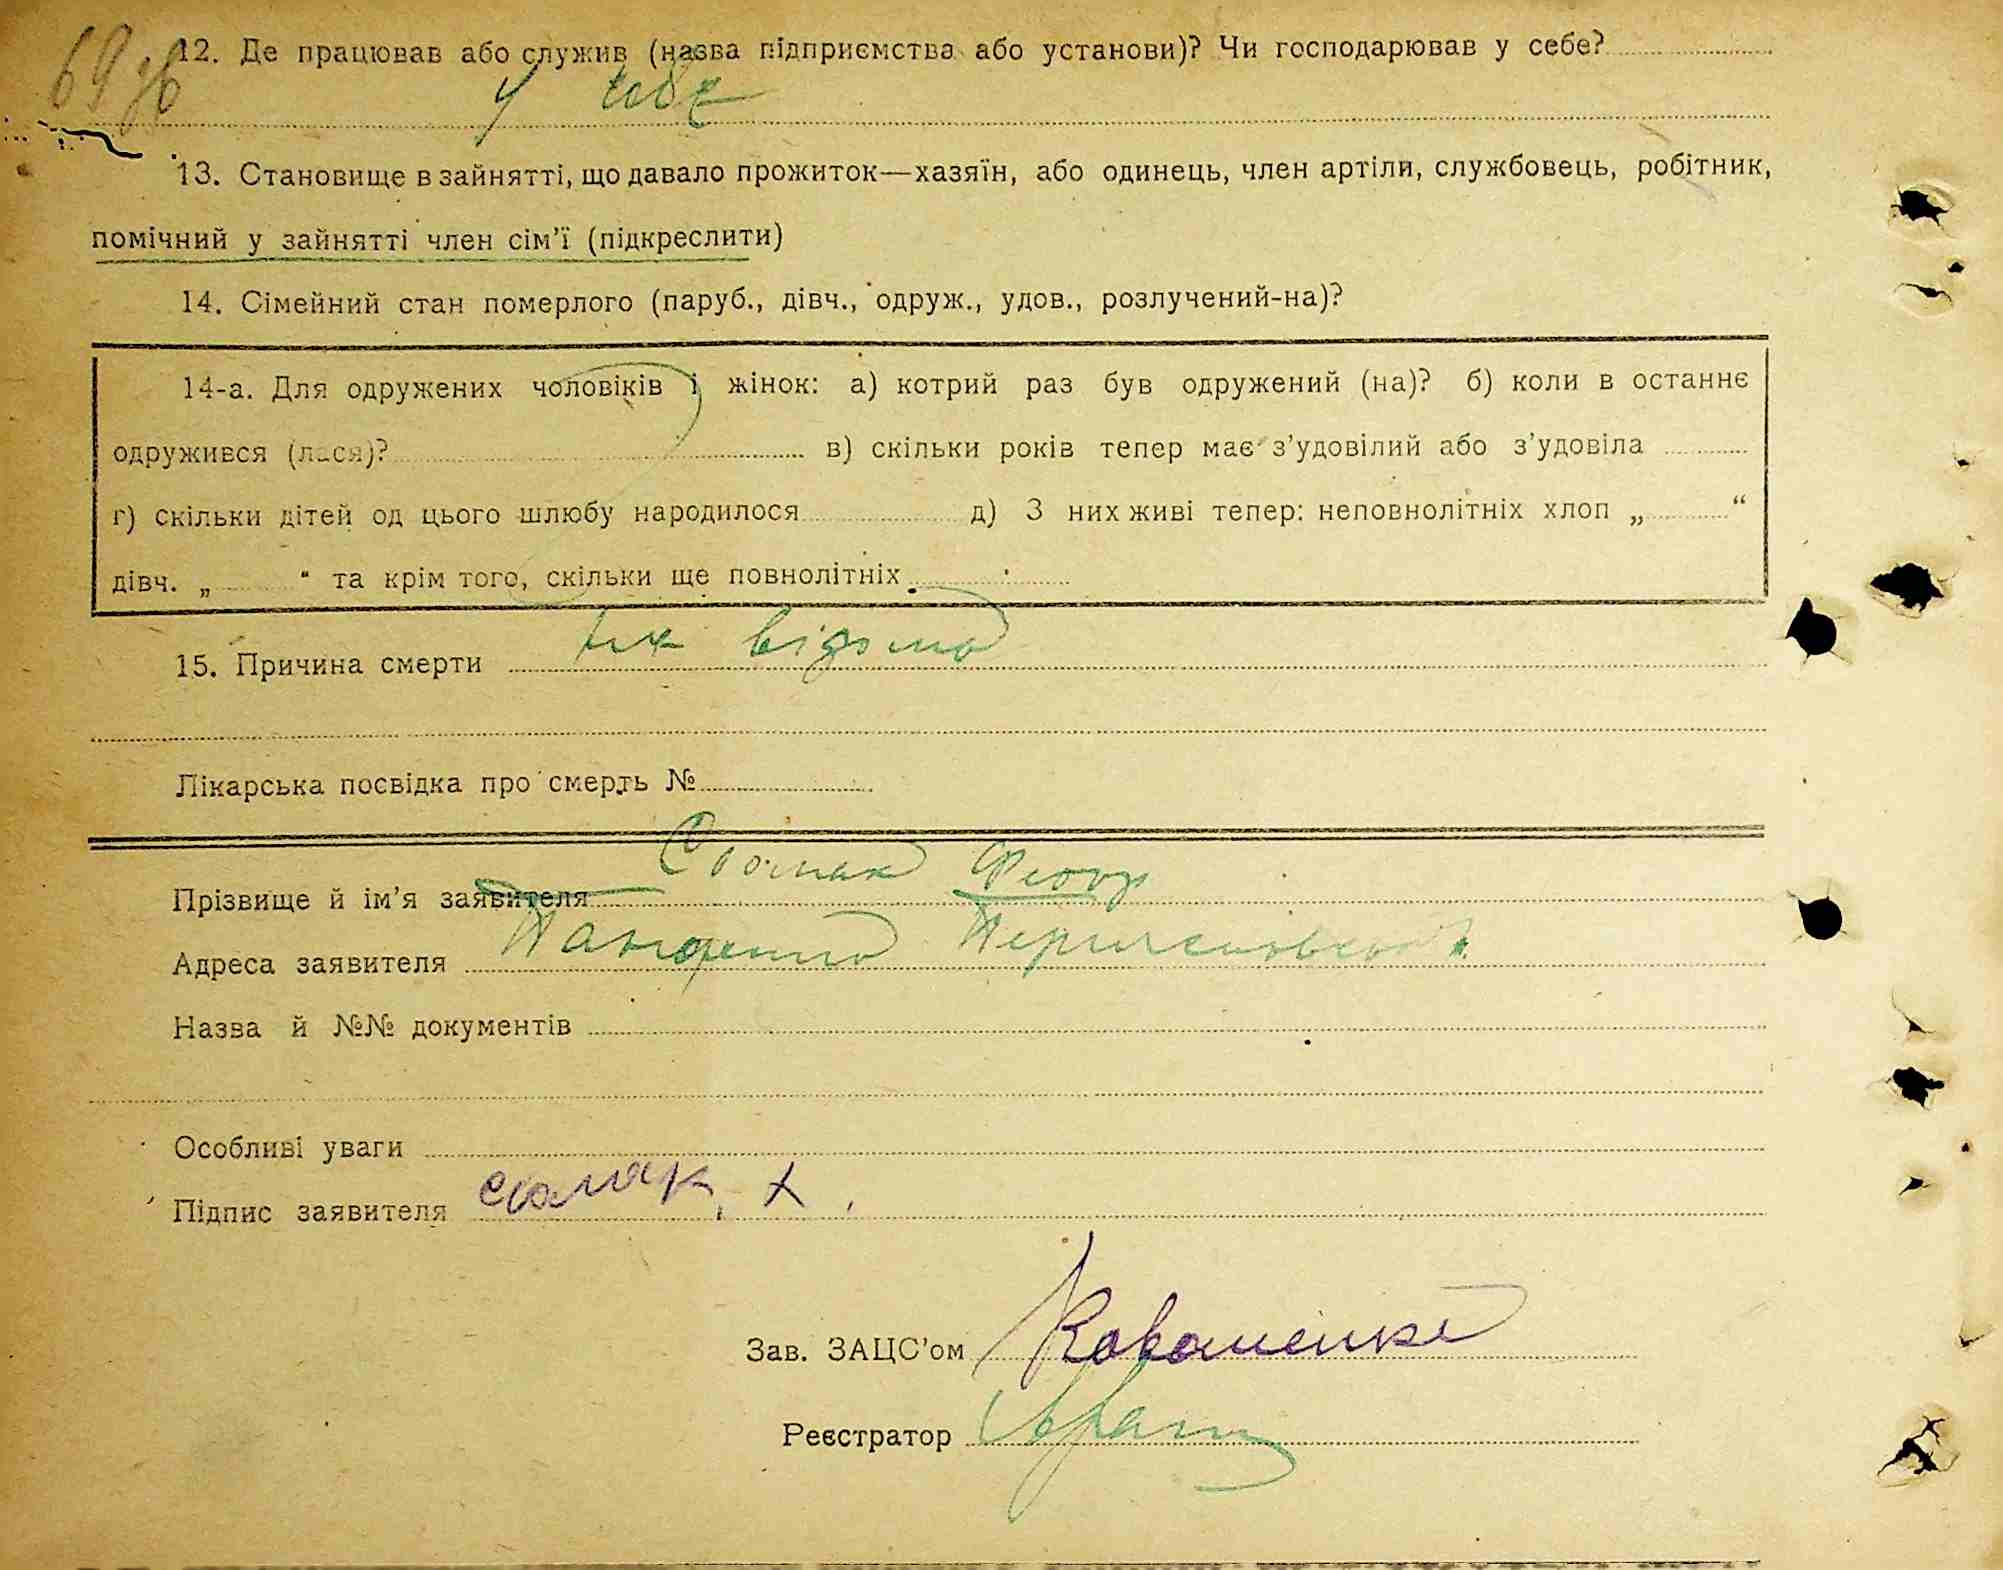 69 зв
12. Де працював або служив (назва підприємства або установи)? Чи господарював у себе?
у себе
13. Становище в зайнятті, що давало прожиток—хазяїн, або одинець, член артіли, службовець, робітник,
помічний у зайнятті член сім’ї (підкреслити)
14. Сімейний стан померлого (паруб., дівч., одруж., удов., розлучений-на)?
14-а. Для одружених чоловіків і жінок: а) котрий раз був одружений (на)? б) коли в останнє
одружився (лася)? в) скільки років тепер має з’удовілий або з’удовіла
г) скільки дітей од цього шлюбу народилося д) З них живі тепер: неповнолітніх хлоп „ “
дівч. „ “ та крім того, скільки ще повнолітніх
15. Причина смерти не відомо
Лікарська посвідка про смерть №
Прізвище й ім’я заявителя Сомак Федор
Адреса заявителя
Назва й №№ документів
Особливі уваги
Підпис заявителя
Зав. ЗАЦС’ом Коваленко
Реєстратор